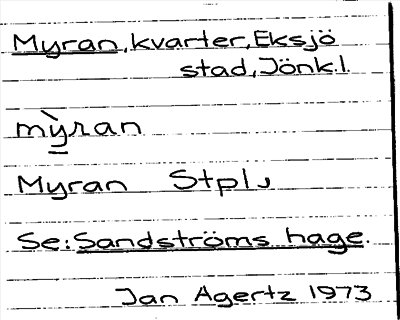 Myran, kvarter, Eksjö
stad, Jönk.l.
mỳran
Myran Stpl,
Se: Sandströms hage.
Jan Agertz 1973